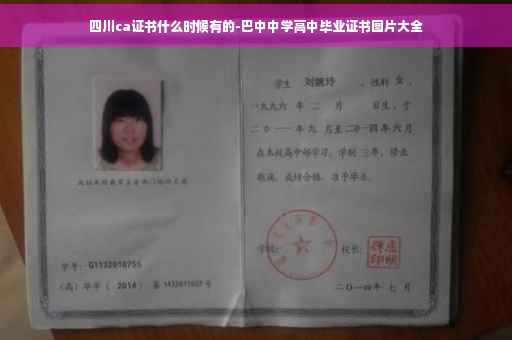 四川ca证书什么时候有的-巴中中学高中毕业证书图片大全
学生 刘婉玲 ,性别 女 ,
一九九六 年 二 月 日生,于
二〇一一年九 月至二〇一四年六月
在本校高中部学习,学制 三年,修业
期满,成绩合格,准予毕业。
学校: 校长:
二〇一四年 七 月
学号: G1132010755
(高)毕字( 2014 )第 1432011027 号